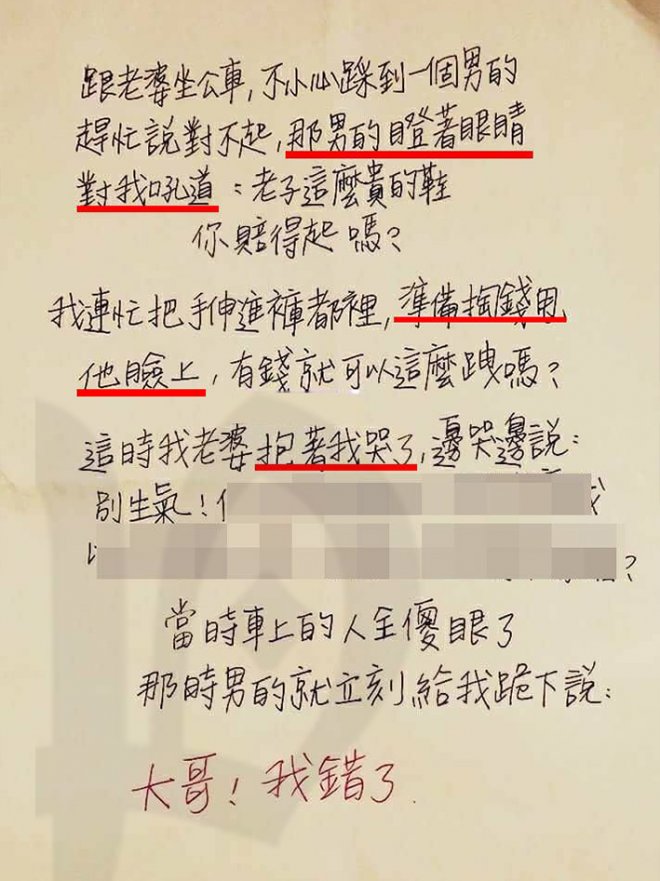 跟老婆坐公車,不小心踩到一個男的
趕忙說對不起,那男的瞪著眼睛
對我吼道:老子這麼貴的鞋
你賠得起嗎?
我連忙把手伸進褲都裡,準備掏錢甩
他臉上,有錢就可以這麼跩嗎?
這時我老婆抱著我哭了,邊哭邊說:
別生氣!
?
當時車上的人全傻眼了
那時男的就立刻給我跪下說:
大哥!我錯了.